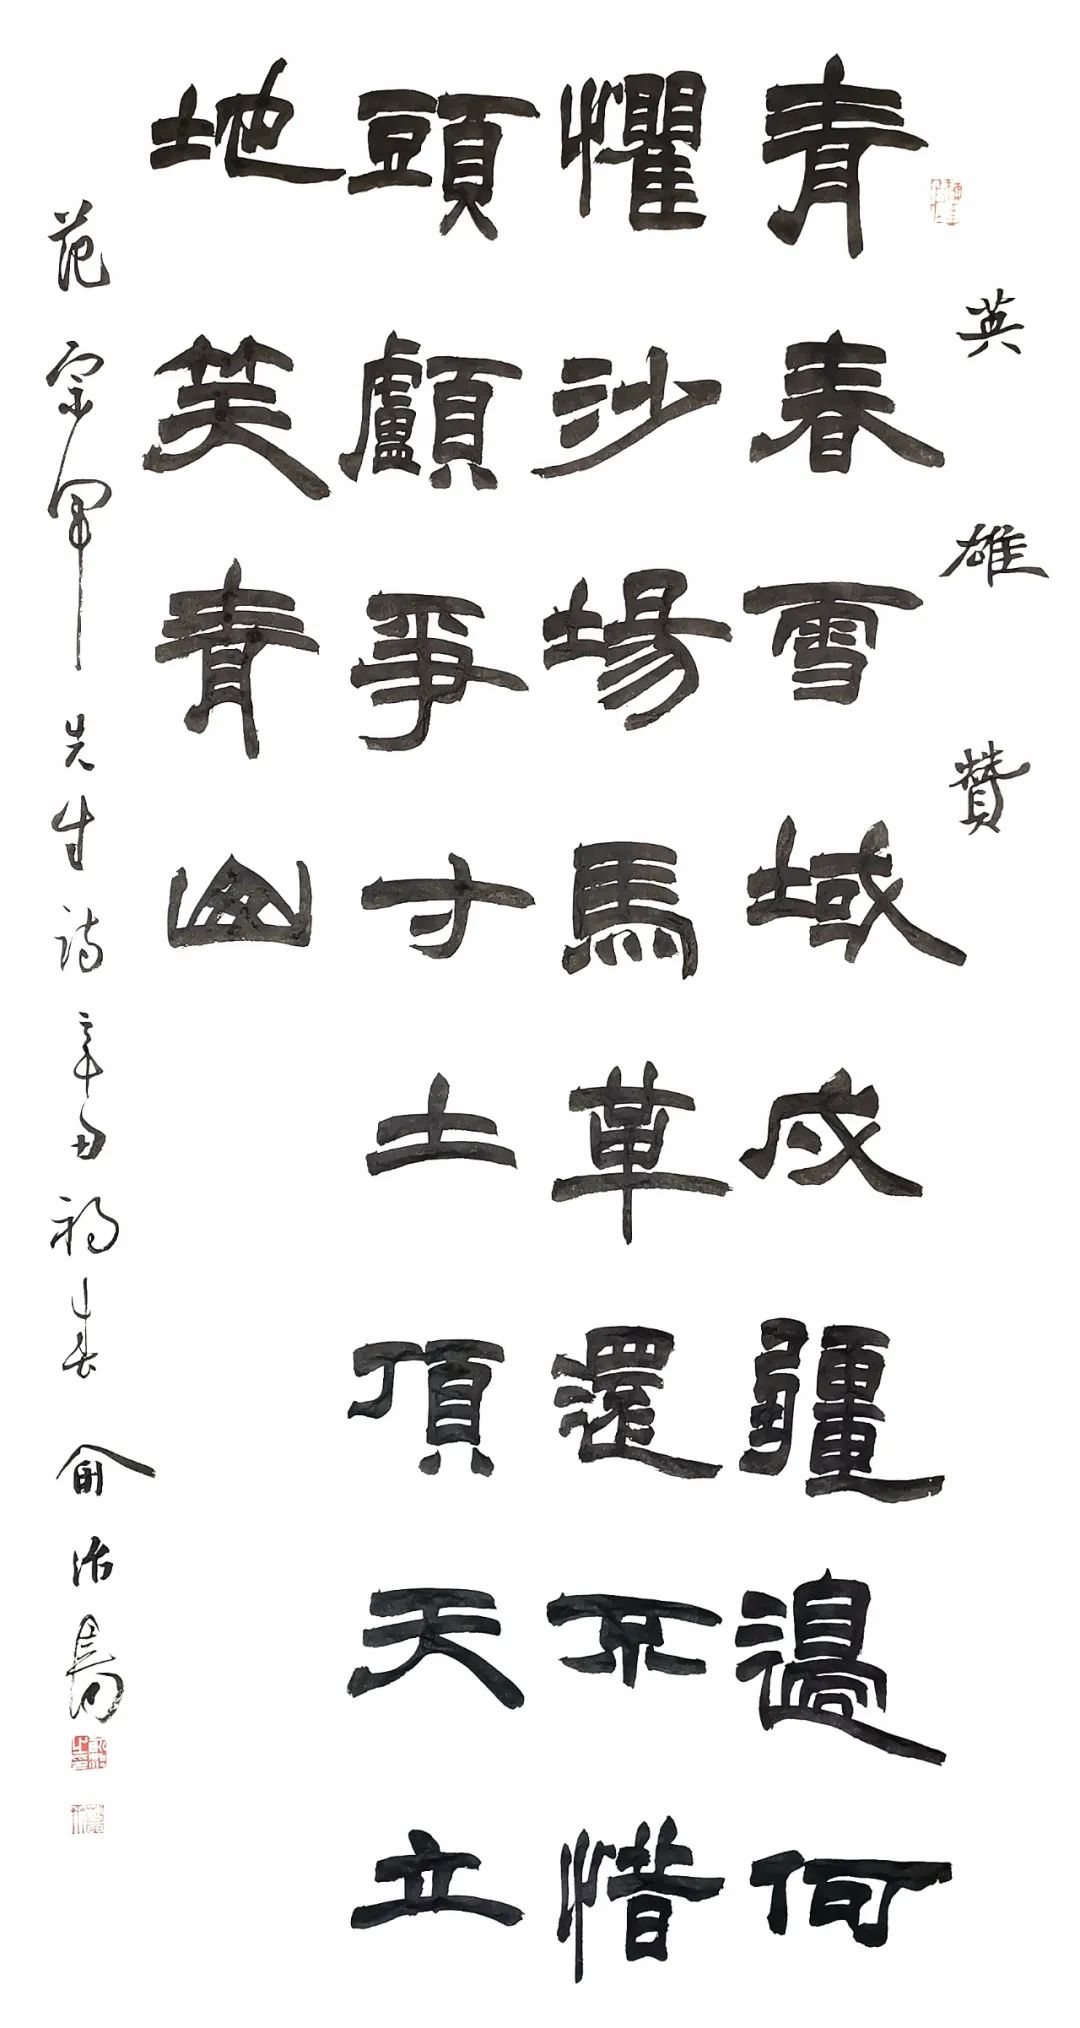 英雄贊
青春雪域戍疆邊何
懼沙場馬革還不惜
頭顱爭寸土頂天立
地笑青山
范宗軍先生詩辛丑初春俞治昜